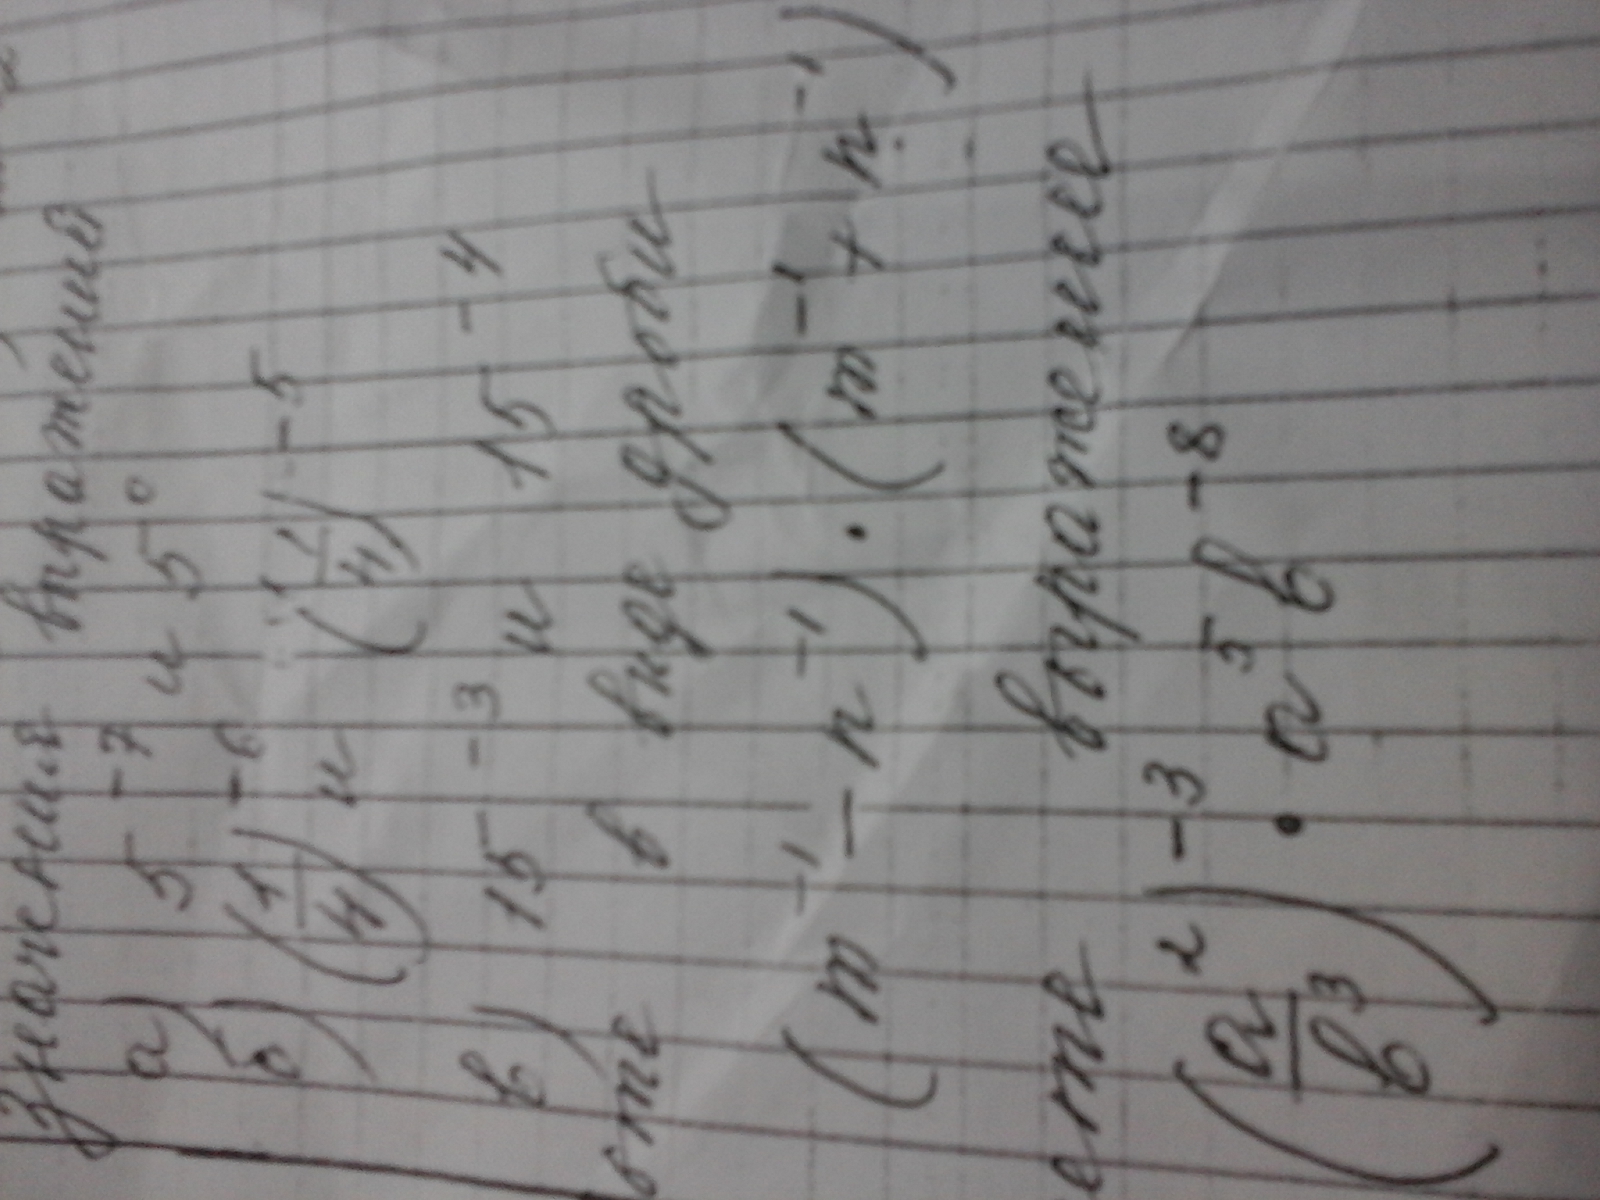 Значения выражения
а) 5⁻⁷ и 5⁰
б) (1/4)⁻⁶ и (1/4)⁻⁵
в) 15⁻³ и 15⁻⁴
в виде дроби
(m⁻¹ – n⁻¹) · (m⁻¹ + n⁻¹)
выражение
(a²/b³)⁻³ · a⁵b⁻⁸